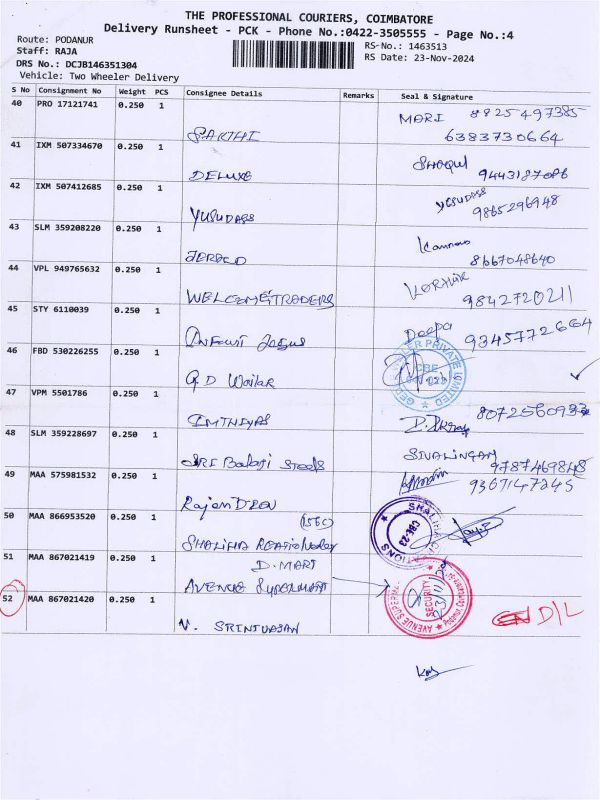 THE PROFESSIONAL COURIERS, COIMBATORE
Delivery Runsheet - PCK - Phone No.:0422-3505555 - Page No.:4
Route: PODANUR
RS-No.: 1463513
Staff: RAJA
RS Date: 23-Nov-2024
DRS No.: DCJB146351304
Vehicle: Two Wheeler Delivery
S No Consignment No Weight PCS Consignee Details Remarks Seal & Signature
40 PRO 17121741 0.250 1 MARI 8925497385
SAKTHI 6383730664
41 IXM 507334670 0.250 1
DELUXE 9443187086
42 IXM 507412685 0.250 1 YESUDASS
YUSUDASS 9865296948
43 SLM 359208220 0.250 1
8667048640
44 VPL 949765632 0.250 1
WELCOME TRADERS 9842720211
45 STY 6110039 0.250 1 Deepa
9345772664
46 FBD 530226255 0.250 1
G D
PRIVATE LIMITED
47 VPM 5501786 0.250 1
IMTHIYAS
48 SLM 359228697 0.250 1 SIVALINGAM
SRI Balaji Steels 9787469845
49 MAA 575981532 0.250 1 9367147245
Rajan
50 MAA 866953520 0.250 1 (156)
SHALIHA
CBE-23
51 MAA 867021419 0.250 1 D. MART
AVENUE SUPERMART
AVENUE SUPERMA
SECURITY
52 MAA 867021420 0.250 1 D/L
V. SRINIVASAN